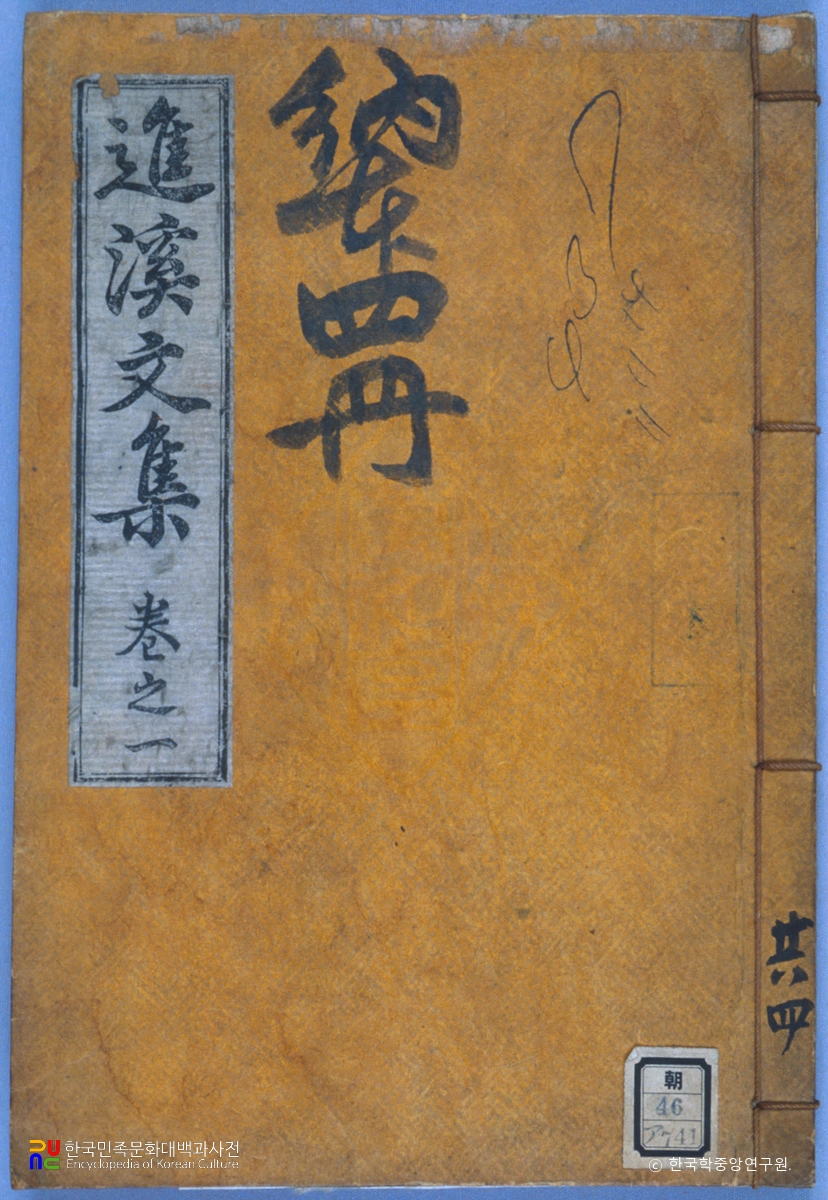 進溪文集 卷之一
納本四冊
共四
朝
46
ア741
한국민족문화대백과사전
Encyclopedia of Korean Culture
© 한국학중앙연구원.